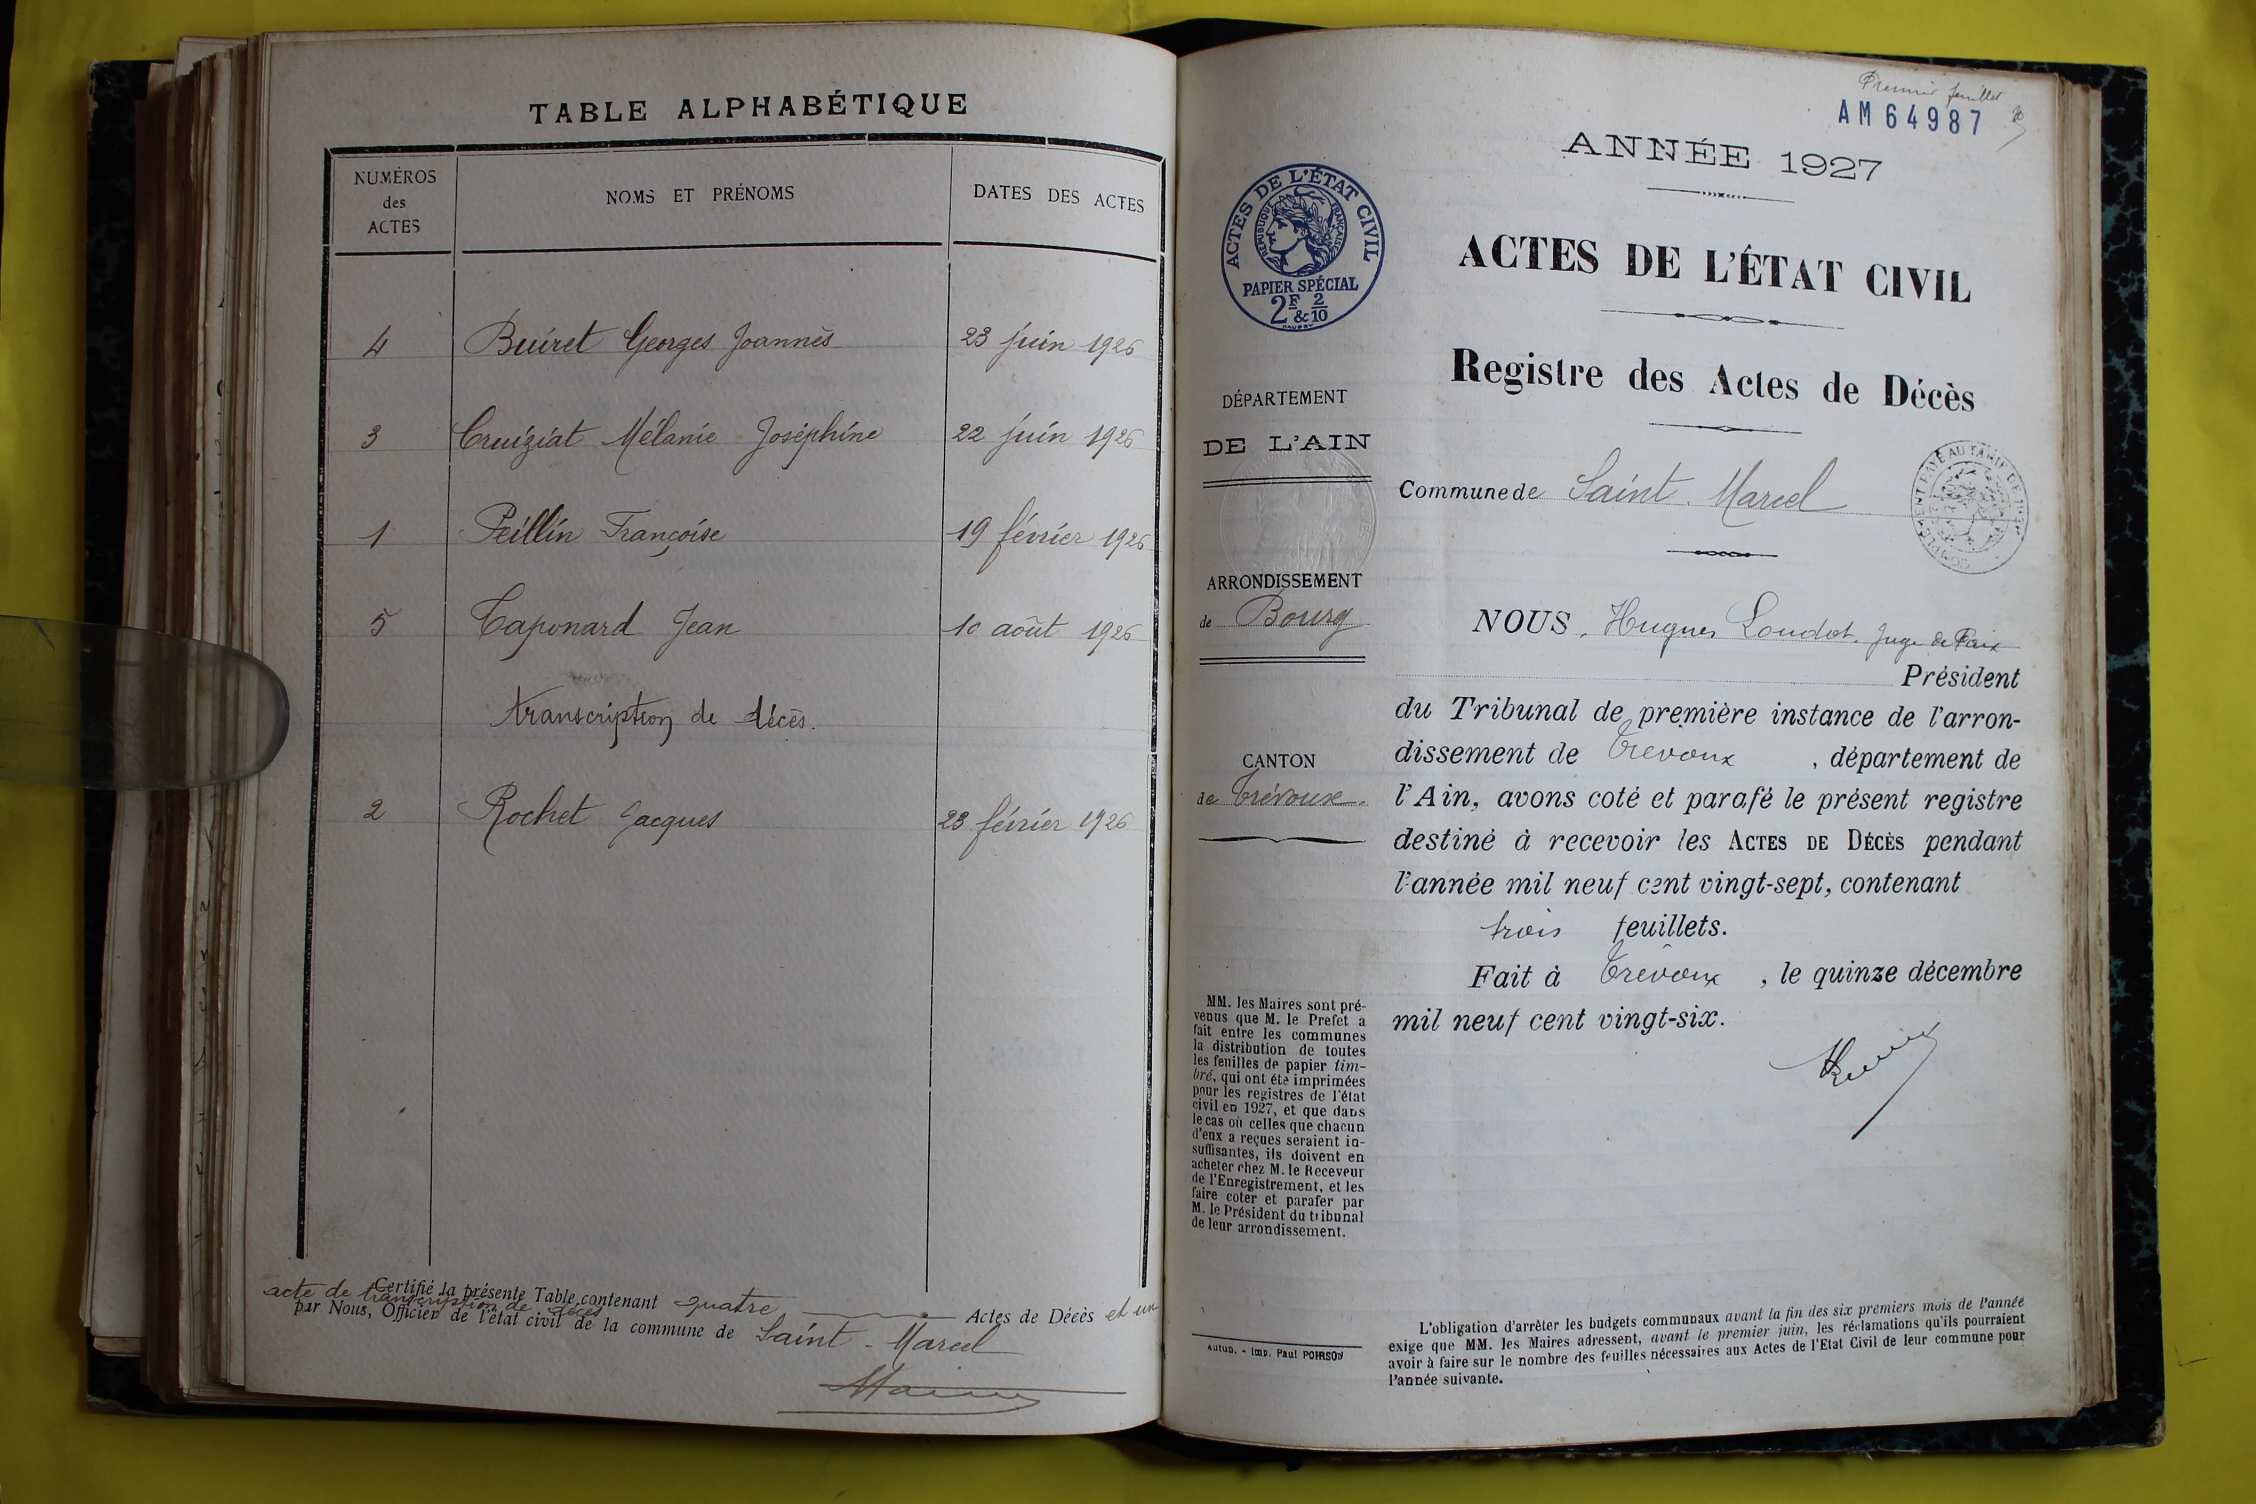 TABLE ALPHABÉTIQUE
NUMÉROS des ACTES
NOMS ET PRÉNOMS
DATES DES ACTES
4 Buiret Georges Joannès 23 juin 1926
3 Cruiziat Mélanie Joséphine 22 juin 1926
1 Peillin Françoise 19 février 1926
5 Caponard Jean 10 août 1926
transcription de décès.
2 Rochet Jacques 23 février 1926
Certifié la présente Table, contenant quatre Actes de Décès et un
acte de transcription de décès
par Nous, Officier de l'état civil de la commune de Saint-Marcel
Premier feuillet
AM64987
ANNÉE 1927
ACTES DE L'ÉTAT CIVIL
RÉPUBLIQUE FRANÇAISE
PAPIER SPÉCIAL
2F & 2/10
ACTES DE L'ÉTAT CIVIL
Registre des Actes de Décès
DÉPARTEMENT
DE L'AIN
Commune de Saint-Marcel
ARRONDISSEMENT
de Bourg
CANTON
de Trévoux.
NOUS, Hugues Loudot, Juge de Paix
Président
du Tribunal de première instance de l'arron-
dissement de Trévoux, département de
l'Ain, avons coté et parafé le présent registre
destiné à recevoir les ACTES DE DÉCÈS pendant
l'année mil neuf cent vingt-sept, contenant
trois feuillets.
Fait à Trévoux, le quinze décembre
mil neuf cent vingt-six.
MM. les Maires sont pré-
venus que M. le Prefet a
fait entre les communes
la distribution de toutes
les feuilles de papier tim-
bré, qui ont été imprimées
pour les registres de l'état
civil en 1927, et que dans
le cas où celles que chacun
d'eux a reçues seraient in-
suffisantes, ils doivent en
acheter chez M. le Receveur
de l'Enregistrement, et les
faire coter et parafer par
M. le Président du tribunal
de leur arrondissement.
Autun. - Imp. Paul POIRSON
L'obligation d'arrêter les budgets communaux avant la fin des six premiers mois de l'année
exige que MM. les Maires adressent, avant le premier juin, les réclamations qu'ils pourraient
avoir à faire sur le nombre des feuilles nécessaires aux Actes de l'Etat Civil de leur commune pour
l'année suivante.